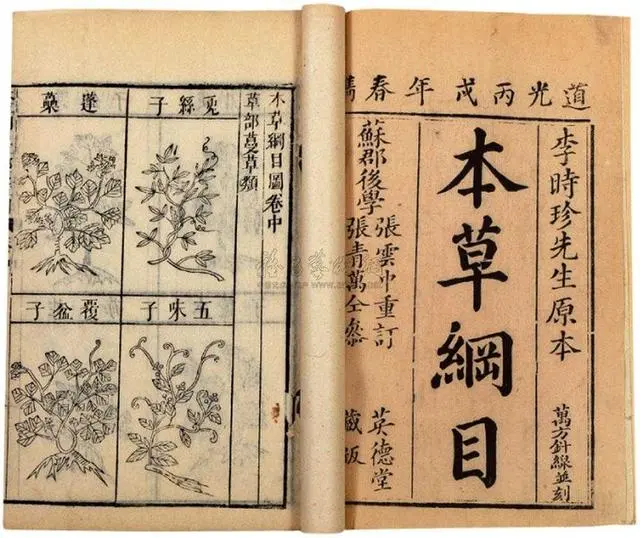 道光丙戌年春鐫
李時珍先生原本
萬方針線並刻
本草綱目
蘇郡後學
張雲中重訂
張青萬仝叅
英德堂
藏板
本草綱目圖卷中
草部蔓草類
兎絲子
蓬蘽
五味子
覆盆子